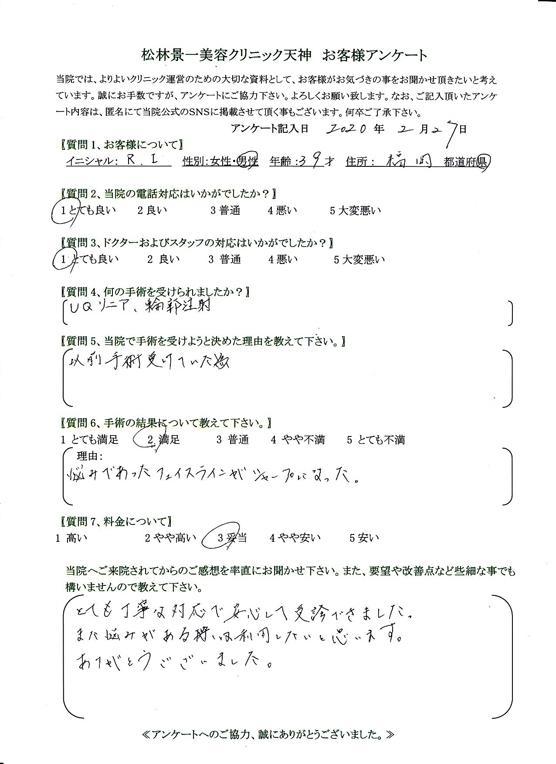 松林景一美容クリニック天神　お客様アンケート
当院では、よりよいクリニック運営のための大切な資料として、お客様がお気づきの事をお聞かせ頂きたいと考え
ています。誠にお手数ですが、アンケートにご協力下さい。よろしくお願い致します。なお、ご記入頂いたアンケ
ート内容は、匿名にて当院公式のSNSに掲載させて頂く事もございます。何卒ご了承下さい。
アンケート記入日　2020 年 2 月 27 日
〖質問 1、お客様について〗
イニシャル: R. I　性別:女性・男性　年齢:39才　住所: 福岡　都道府県
〖質問 2、当院の電話対応はいかがでしたか？〗
1 とても良い　2 良い　3 普通　4 悪い　5 大変悪い
〖質問 3、ドクターおよびスタッフの対応はいかがでしたか？〗
1 とても良い　2 良い　3 普通　4 悪い　5 大変悪い
〖質問 4、何の手術を受けられましたか？〗
UQリニア、輪郭注射
〖質問 5、当院で手術を受けようと決めた理由を教えて下さい。〗
以前手術受けていた為
〖質問 6、手術の結果について教えて下さい。〗
1 とても満足　2 満足　3 普通　4 やや不満　5 とても不満
理由:
悩みであったフェイスラインがシャープになった。
〖質問 7、料金について〗
1 高い　2 やや高い　3 妥当　4 やや安い　5 安い
当院へご来院されてからのご感想を率直にお聞かせ下さい。また、要望や改善点など些細な事でも
構いませんので教えて下さい。
とても丁寧な対応で安心して受診できました。
また悩みがある時は利用したいと思います。
ありがとうございました。
≪アンケートへのご協力、誠にありがとうございました。≫